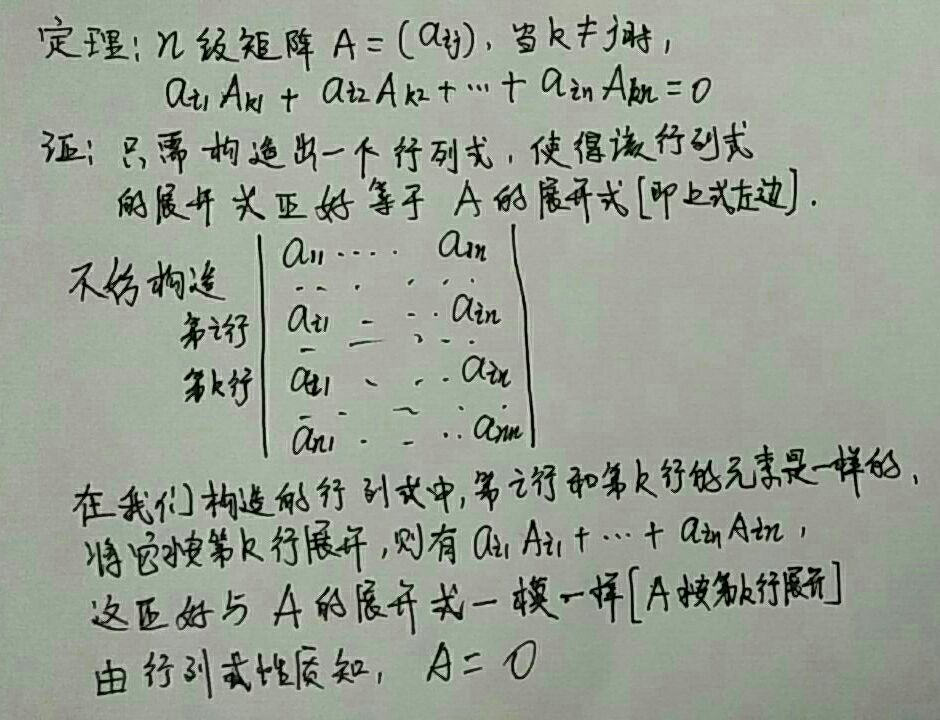 定理：n级矩阵 A = (aij), 当k≠j时,
ai1 Ak1 + ai2 Ak2 + … + ain Akn = 0
证：只需构造出一个行列式, 使得该行列式
的展开式正好等于 A 的展开式[即上式左边].
不妨构造
a11 ···· a1n
第i行 ai1 – ·· ain
第k行 ai1 ··· ain
an1 · – ·· ann
在我们构造的行列式中, 第i行和第k行的元素是一样的,
将它按第k行展开, 则有 ai1 Ai1 + … + ain Ain,
这正好与 A 的展开式一模一样[A按第k行展开]
由行列式性质知, A = 0